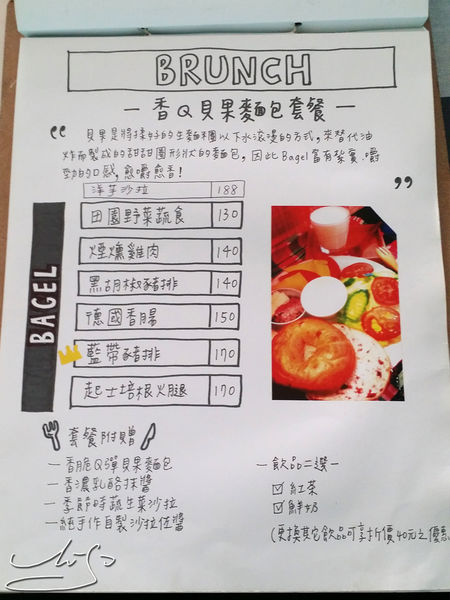 BRUNCH
— 香Q貝果麵包套餐 —
“ 貝果是將揉好的生麵糰以下水滾燙的方式，來替代油
炸而製成的甜甜圈形狀的麵包，因此Bagel富有紮實.嚼
勁的口感，愈嚼愈香！ ”
洋芋沙拉 188
田園野菜蔬食 130
煙燻雞肉 140
黑胡椒豬排 140
德國香腸 150
藍帶豬排 170
起士培根火腿 170
BAGEL
套餐附贈
— 香脆Q彈貝果麵包
— 香濃乳酪抹醬
— 季節時蔬生菜沙拉
— 純手作自製沙拉佐醬
— 飲品二選 —
☑ 紅茶
☑ 鮮奶
(更換其它飲品可享折價40元之優惠